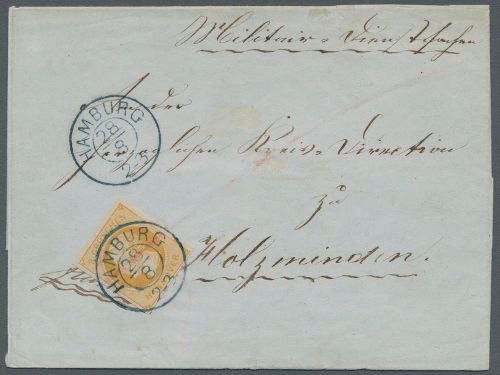 Militair-Dienstsachen
An der
herzoglichen Kreis-Direction
zu
Holzminden.
HAMBURG
28
8
2-3
HAMBURG
28
8
2-3